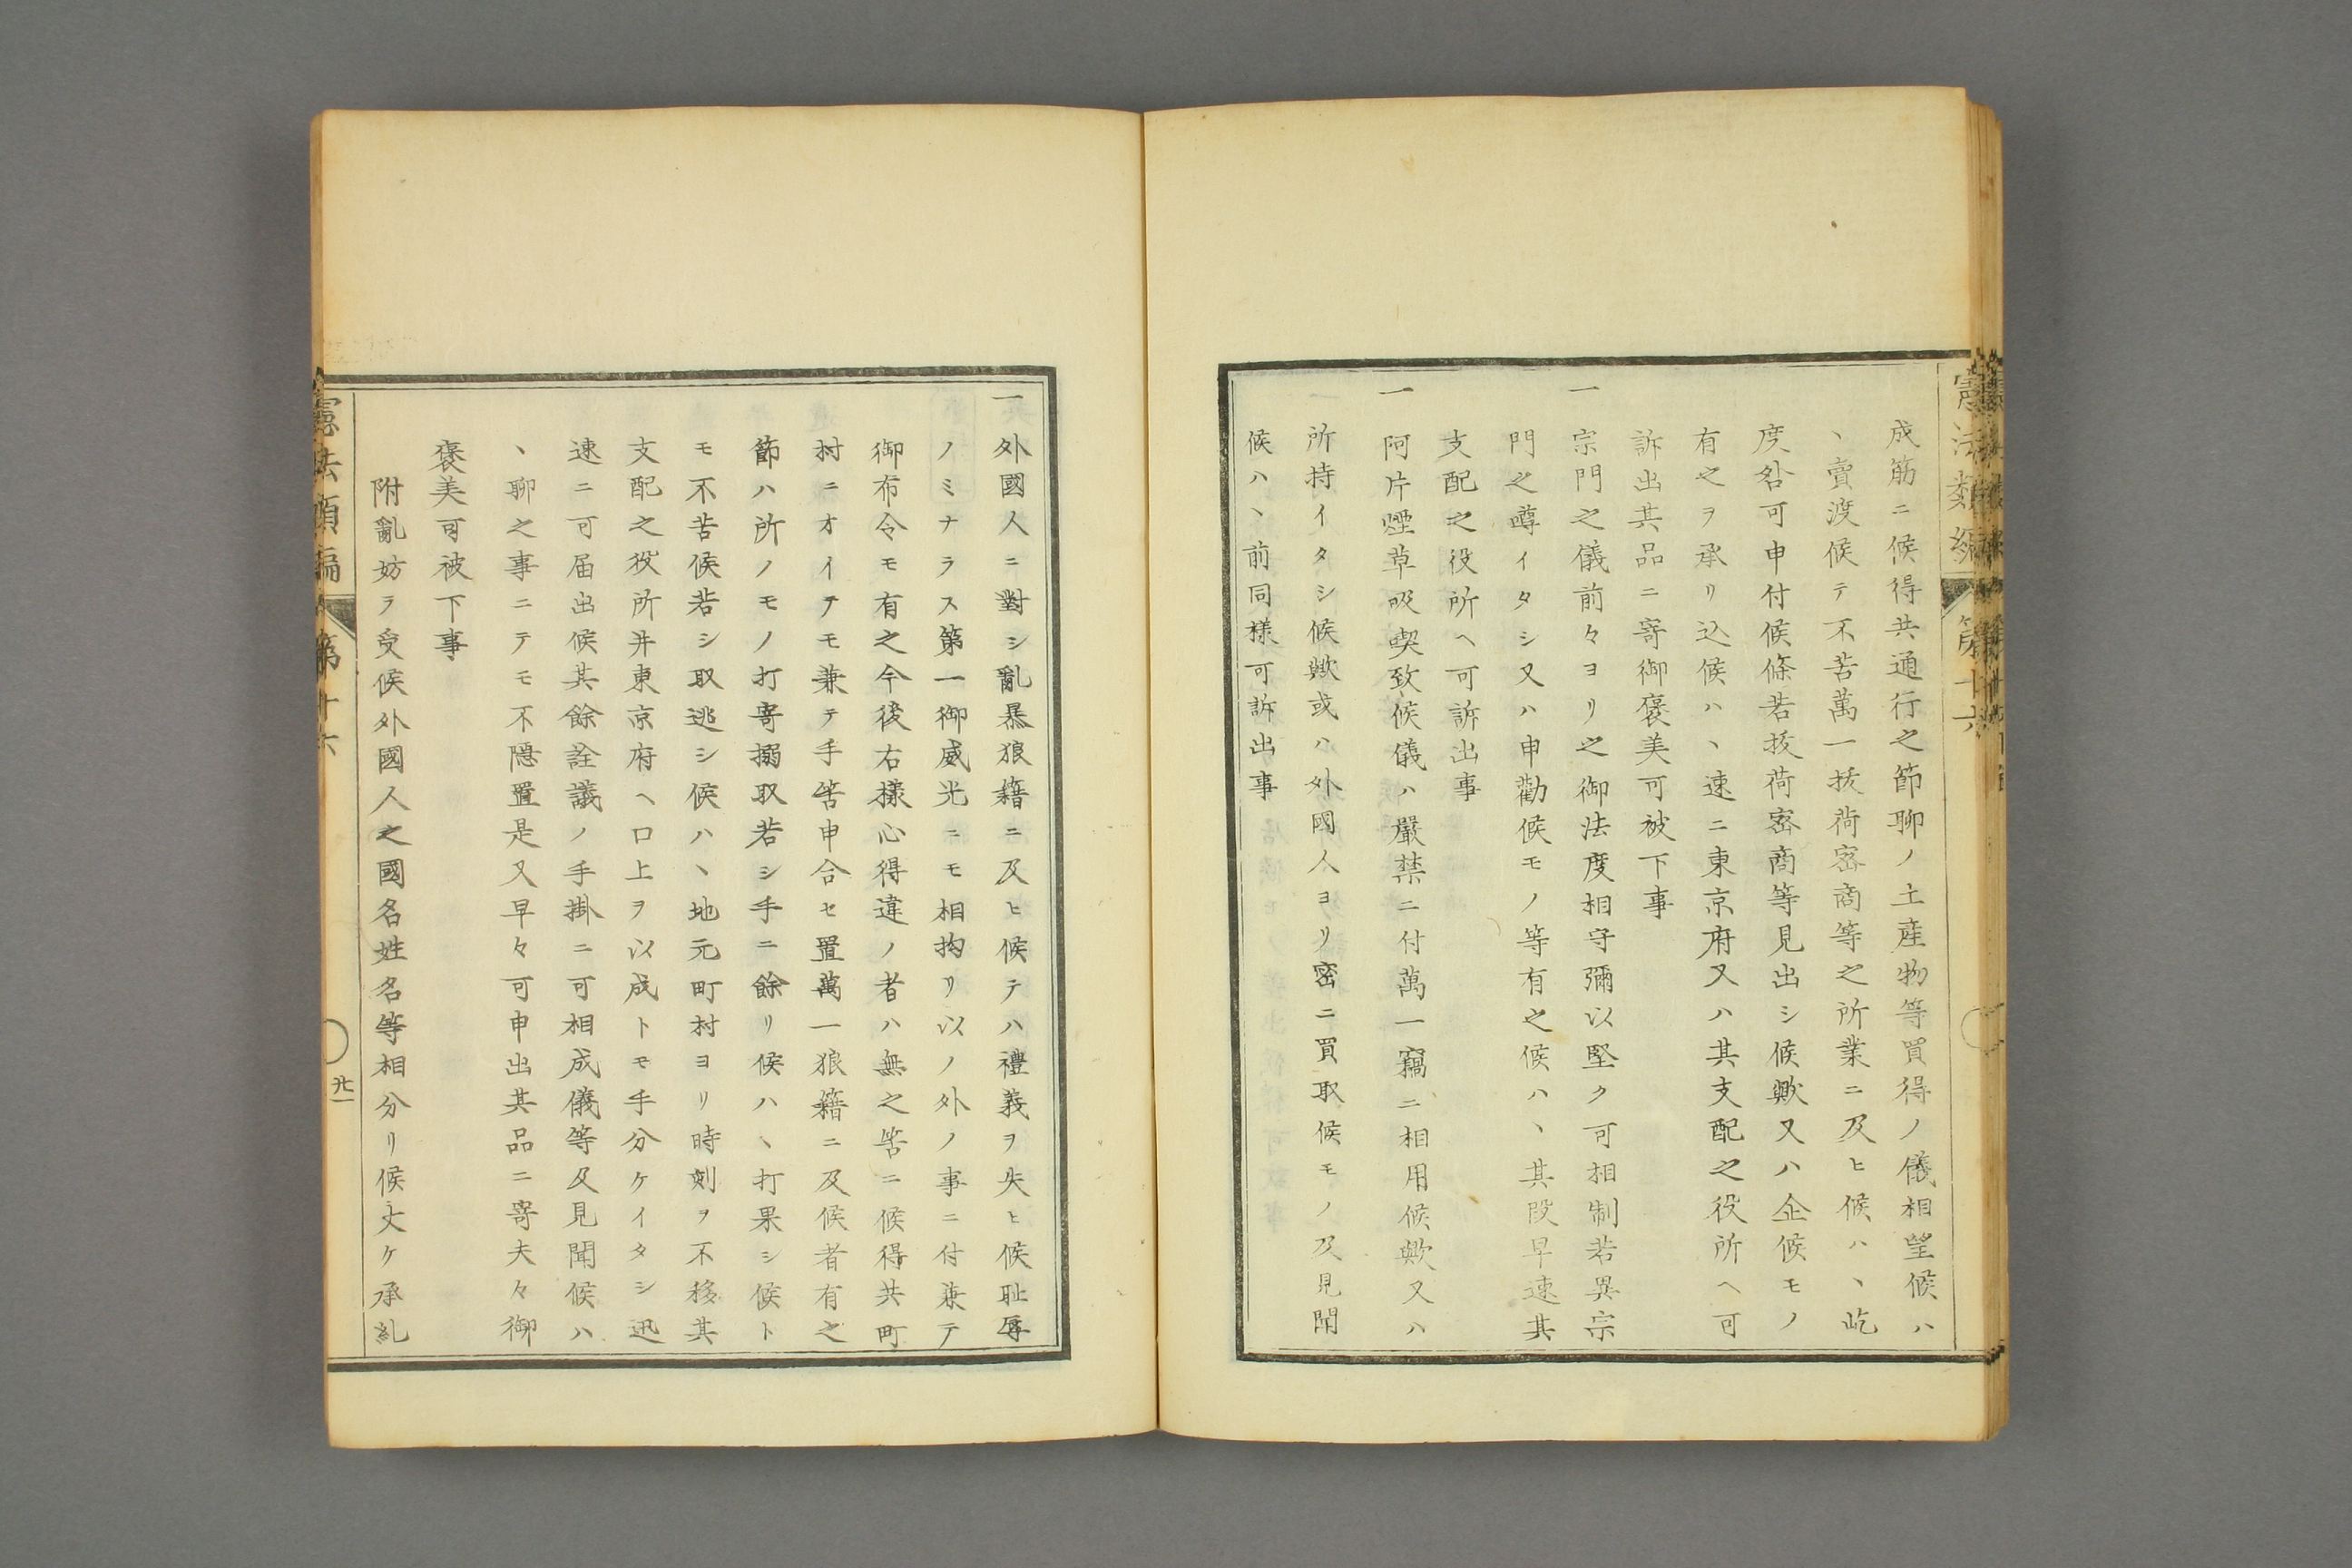 憲法類編
第十六
成筋ニ候得共通行之節聊ノ土産物等買得ノ儀相望候ハ
ヽ賣渡候テ不苦萬一拔荷密商等之所業ニ及ヒ候ハヽ屹
度咎可申付候條若拔荷密商等見出シ候歟又ハ企候モノ
有之ヲ承リ込候ハヽ速ニ東京府又ハ其支配之役所ヘ可
訴出其品ニ寄御褒美可被下事
一宗門之儀前々ヨリ之御法度相守彌以堅ク可相制若異宗
門之噂イタシ又ハ申勸候モノ等有之候ハヽ其段早速其
支配之役所ヘ可訴出事
一阿片煙草吸喫致候儀ハ嚴禁ニ付萬一竊ニ相用候歟又ハ
所持イタシ候歟或ハ外國人ヨリ密ニ買取候モノ及見聞
候ハヽ前同樣可訴出事
一外國人ニ對シ亂暴狼籍ニ及ヒ候テハ禮義ヲ失ヒ候耻辱
ノミナラス第一御威光ニモ相拘リ以ノ外ノ事ニ付兼テ
御布令モ有之今後右樣心得違ノ者ハ無之筈ニ候得共町
村ニオイテモ兼テ手筈申合セ置萬一狼籍ニ及候者有之
節ハ所ノモノ打寄搦取若シ手ニ餘リ候ハヽ打果シ候ト
モ不苦候若シ取逃シ候ハヽ地元町村ヨリ時刻ヲ不移其
支配之役所并東京府ヘ口上ヲ以成トモ手分ケイタシ迅
速ニ可届出候其餘詮議ノ手掛ニ可相成儀等及見聞候ハ
ヽ聊之事ニテモ不隱置是又早々可申出其品ニ寄夫々御
褒美可被下事
附亂妨ヲ受候外國人之國名姓名等相分リ候丈ケ承糺
憲法類編
第十六
廿一